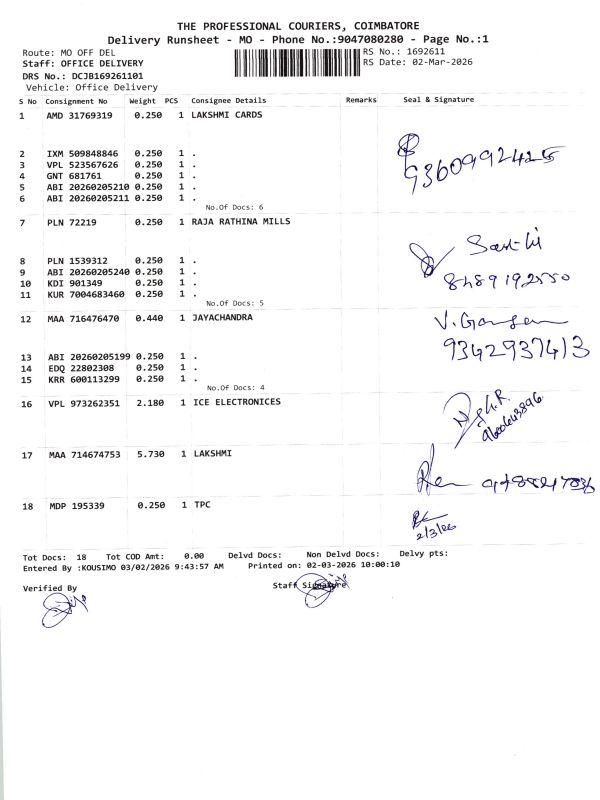 THE PROFESSIONAL COURIERS, COIMBATORE
Delivery Runsheet - MO - Phone No.:9047080280 - Page No.:1
Route: MO OFF DEL RS No.: 1692611
Staff: OFFICE DELIVERY RS Date: 02-Mar-2026
DRS No.: DCJB169261101
Vehicle: Office Delivery
S No Consignment No Weight PCS Consignee Details Remarks Seal & Signature
1 AMD 31769319 0.250 1 LAKSHMI CARDS
9360992425
2 IXM 509848846 0.250 1 .
3 VPL 523567626 0.250 1 .
4 GNT 681761 0.250 1 .
5 ABI 20260205210 0.250 1 .
6 ABI 20260205211 0.250 1 .
No.Of Docs: 6
7 PLN 72219 0.250 1 RAJA RATHINA MILLS
8489192550
8 PLN 1539312 0.250 1 .
9 ABI 20260205240 0.250 1 .
10 KDI 901349 0.250 1 .
11 KUR 7004683460 0.250 1 .
No.Of Docs: 5
12 MAA 716476470 0.440 1 JAYACHANDRA
9342937413
13 ABI 20260205199 0.250 1 .
14 EDQ 22802308 0.250 1 .
15 KRR 600113299 0.250 1 .
No.Of Docs: 4
16 VPL 973262351 2.180 1 ICE ELECTRONICES
17 MAA 714674753 5.730 1 LAKSHMI
18 MDP 195339 0.250 1 TPC
2/3/26
Tot Docs: 18 Tot COD Amt: 0.00 Delvd Docs: Non Delvd Docs: Delvy pts:
Entered By :KOUSIMO 03/02/2026 9:43:57 AM Printed on: 02-03-2026 10:00:10
Verified By Staff Signature